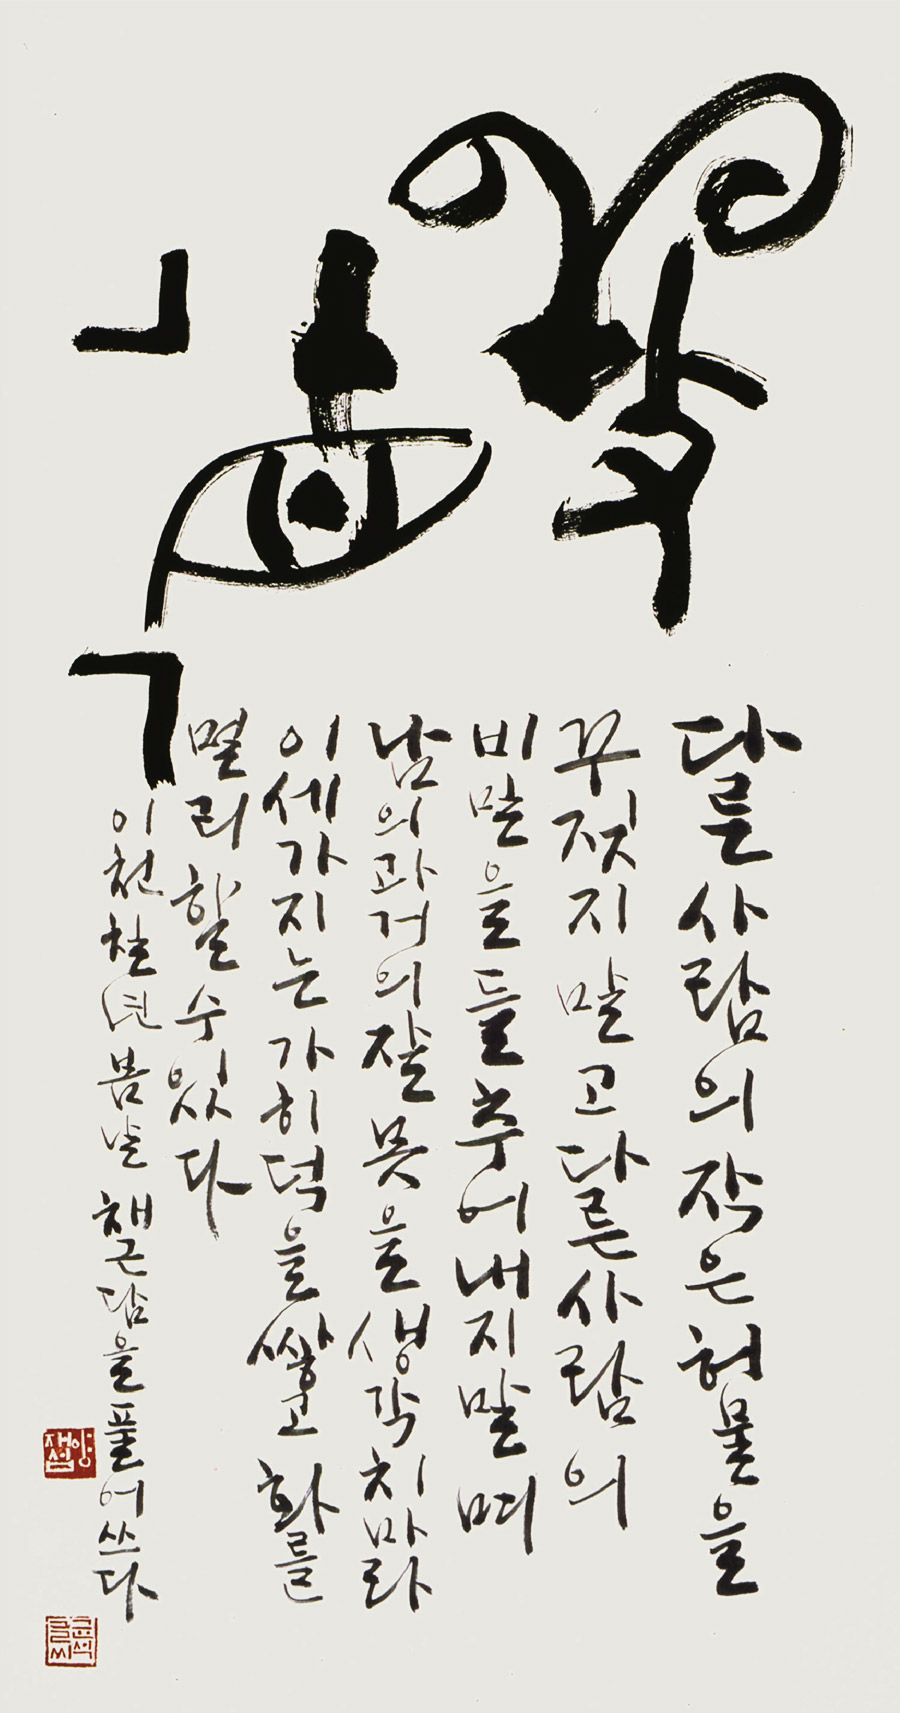 다른 사람의 작은 허물을
꾸짖지 말고 다른 사람의
비밀을 들추어내지 말며
남의 과거의 잘못을 생각치 마라
이 세가지는 가히 덕을 쌓고 화를
멀리할 수 있다
이천칠년 봄날 채근담을 풀어쓰다